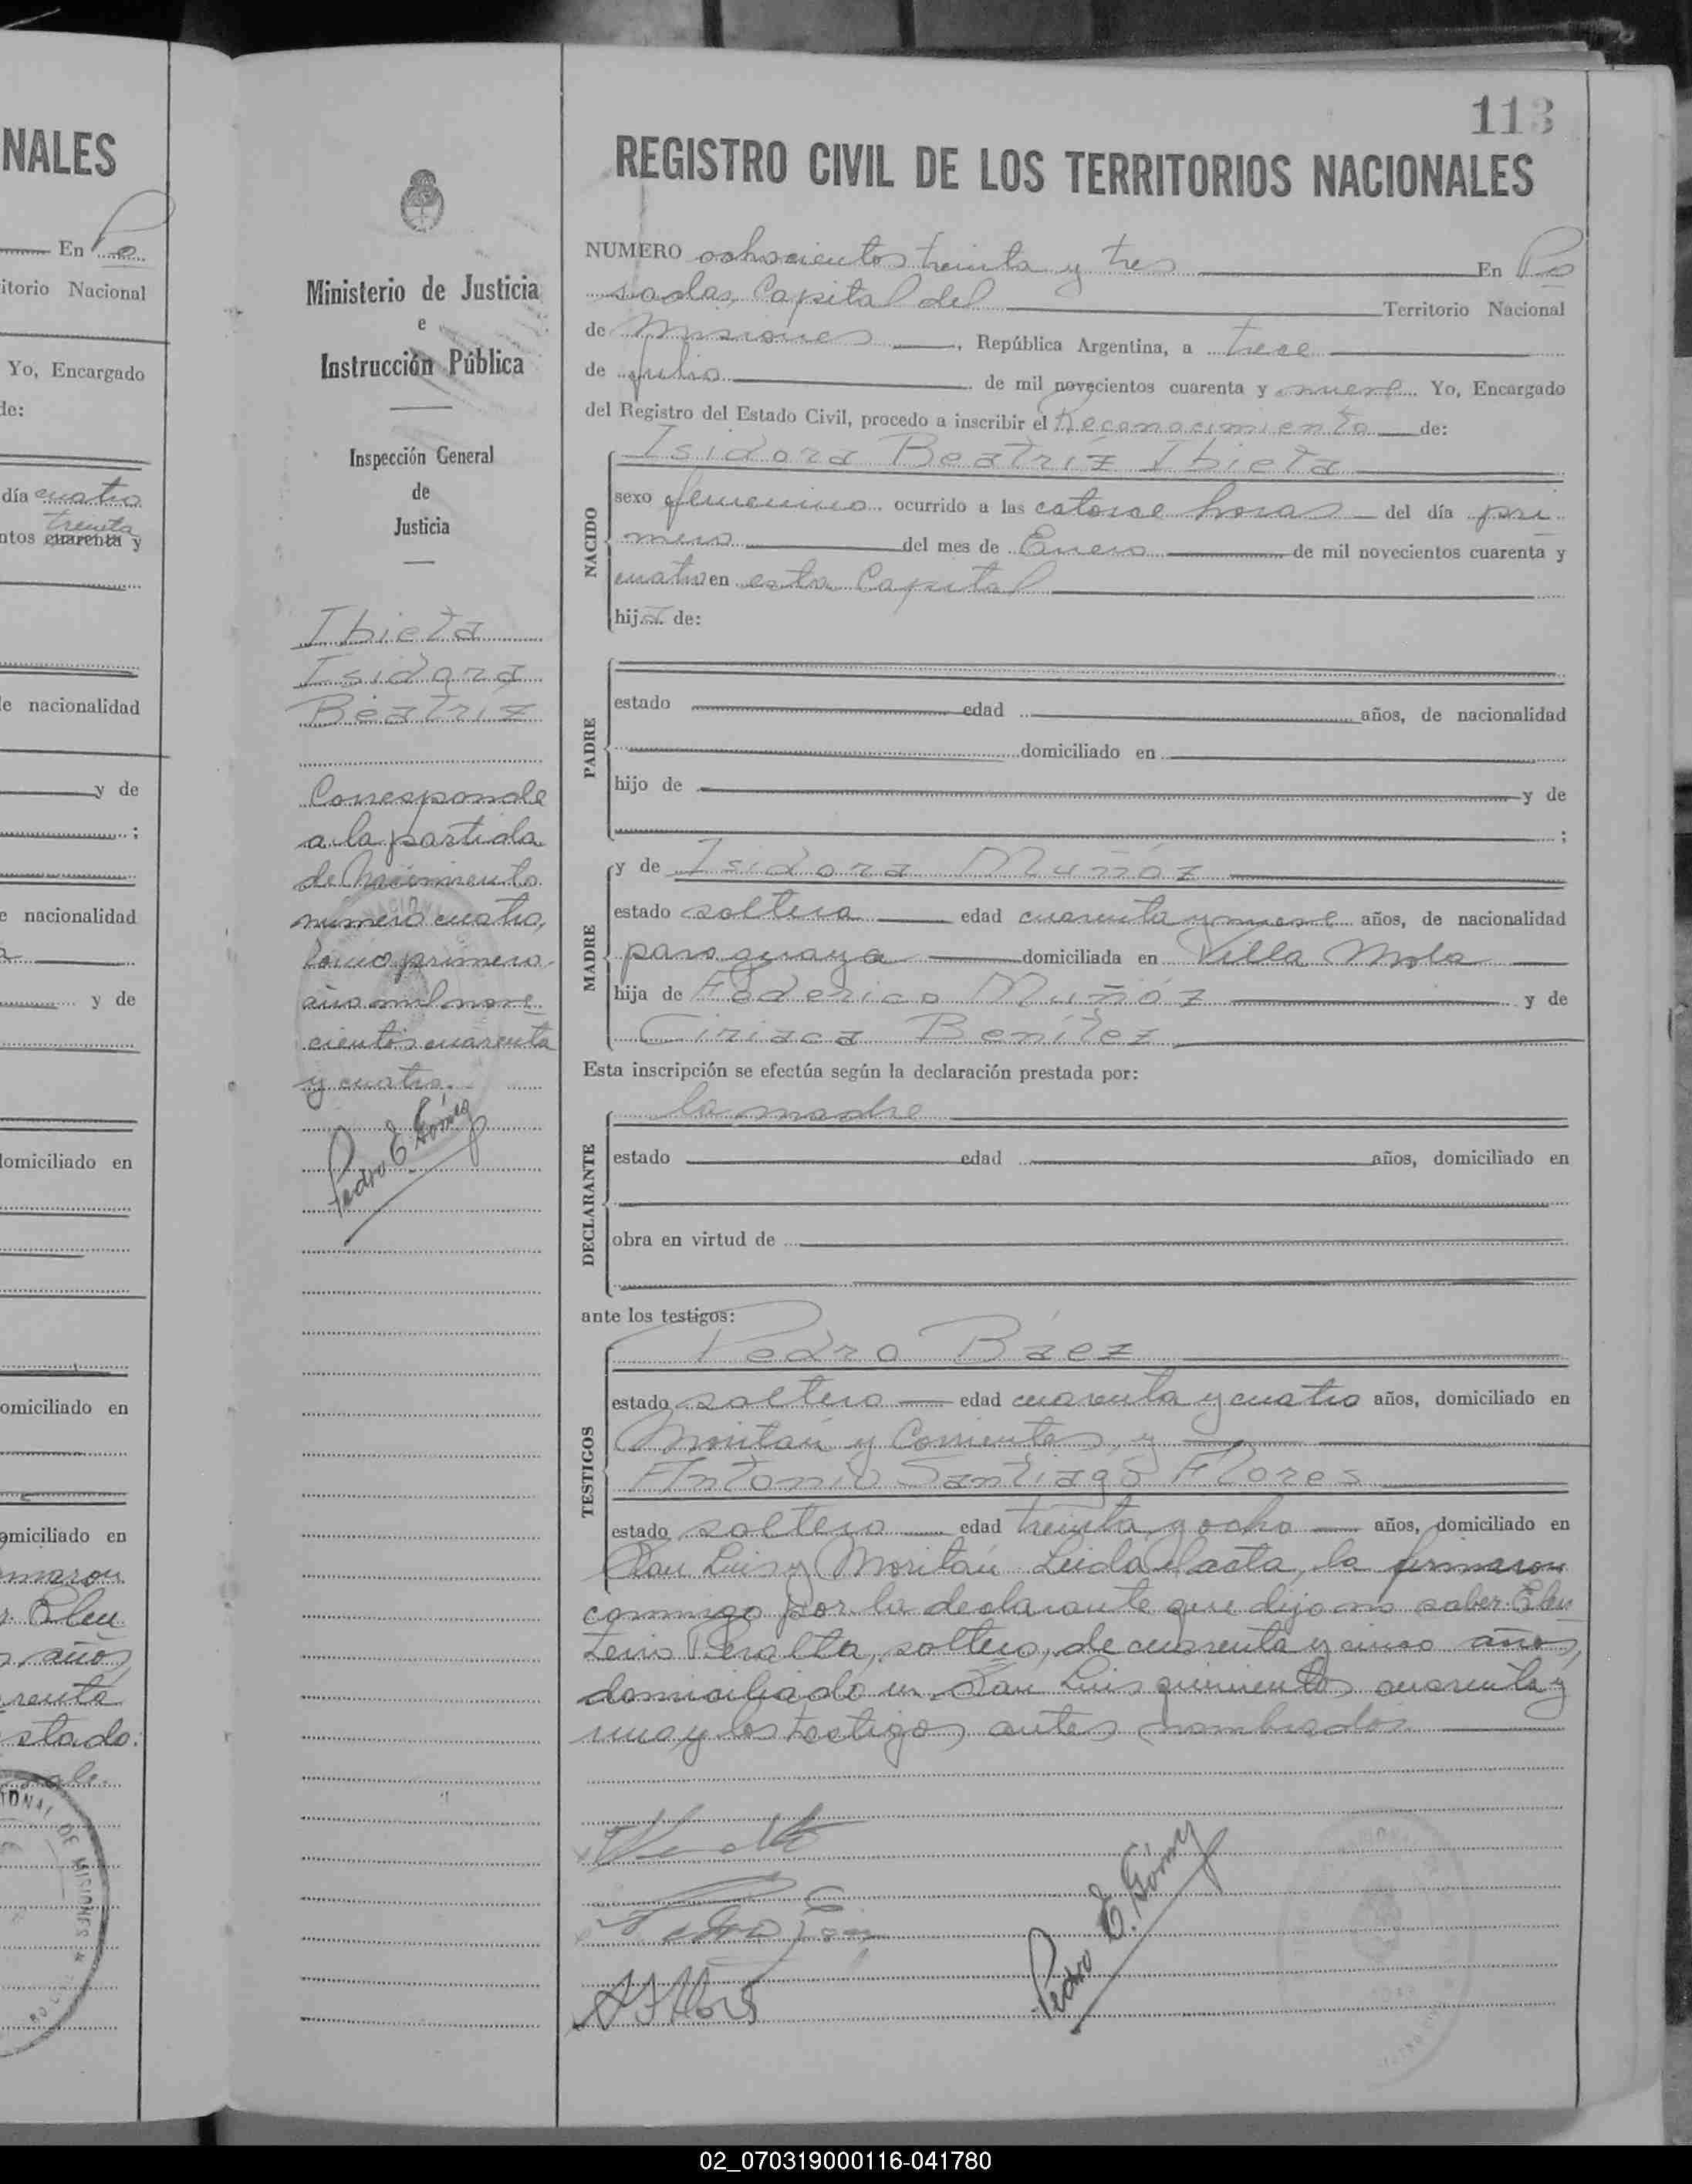 NALES
En Po
itorio Nacional
Yo, Encargado
de:
día cuatro
treinta
ntos cuarenta y
e nacionalidad
y de
;
e nacionalidad
y de
domiciliado en
omiciliado en
omiciliado en
maron
Eleu
años
renta
stado.
Ministerio de Justicia
e
Instrucción Pública
Inspección General
de
Justicia
Ibieta
Isidora
Beatriz
Corresponde
a la partida
de Nacimiento
numero cuatro,
tomo primero
año mil nove
cientos cuarenta
y cuatro.
Pedro E. Gómez
113
REGISTRO CIVIL DE LOS TERRITORIOS NACIONALES
NUMERO ochocientos treinta y tres En Po
sadas, Capital del Territorio Nacional
de Misiones, República Argentina, a trece
de Julio de mil novecientos cuarenta y nueve Yo, Encargado
del Registro del Estado Civil, procedo a inscribir el Reconocimiento de:
NACIDO
Isidora Beatriz Ibieta
sexo femenino ocurrido a las catorce horas del día pri
mero del mes de Enero de mil novecientos cuarenta y
cuatro en esta Capital
hija de:
PADRE
estado edad años, de nacionalidad
domiciliado en
hijo de y de
;
MADRE
y de Isidora Muñóz
estado soltera edad cuarenta y nueve años, de nacionalidad
paraguaya domiciliada en Villa Mola
hija de Federico Muñóz y de
Ciriaca Benítez
Esta inscripción se efectúa según la declaración prestada por:
DECLARANTE
la madre
estado edad años, domiciliado en
obra en virtud de
ante los testigos:
TESTIGOS
Pedro Báez
estado soltero edad cuarenta y cuatro años, domiciliado en
Moritán y Corrientes, y
Antonio Santiago Flores
estado soltero edad treinta y ocho años, domiciliado en
San Luis y Moritán Leida el acta, la firmaron
conmigo por la declarante que dijo no saber Eleu
terio Peralta, soltero, de cuarenta y cinco años,
domiciliado en San Luis quinientos cuarenta y
uno y los testigos antes nombrados.
Pedro E. Gómez
02_070319000116-041780